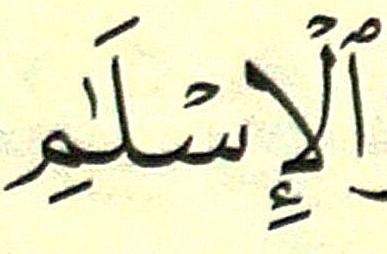 ٱلْإِسْلَـٰمِ